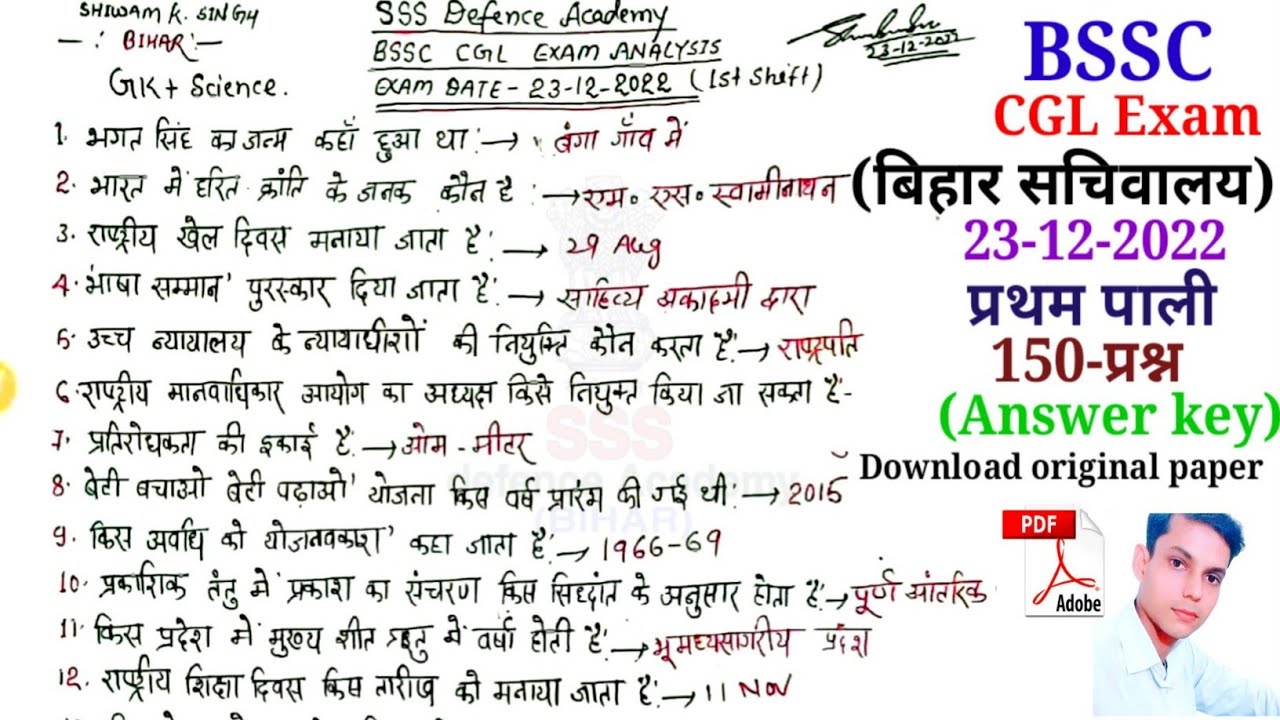 SHIWAM K. SINGH
-: BIHAR:-
GK+ Science.
SSS Defence Academy
BSSC CGL EXAM ANALYSIS
EXAM DATE - 23-12-2022 (1st Shift)
23-12-2022
1. भगत सिंह का जन्म कहाँ हुआ था:→ बंगा गाँव में
2. भारत में हरित क्रांति के जनक कौन है:→ एम० एस० स्वामीनाथन
3. राष्ट्रीय खेल दिवस मनाया जाता है:→ 29 Aug
4. 'भाषा सम्मान' पुरस्कार दिया जाता है:→ साहित्य अकादमी द्वारा
5. उच्च न्यायालय के न्यायाधीशों की नियुक्ति कौन करता है:→ राष्ट्रपति
6. राष्ट्रीय मानवाधिकार आयोग का अध्यक्ष किसे नियुक्त किया जा सकता है-
7. प्रतिरोधकता की इकाई है:→ ओम-मीटर
8. बेटी बचाओ बेटी पढ़ाओ' योजना किस वर्ष प्रारंभ की गई थी:→ 2015
9. किस अवधि को योजनावकाश' कहा जाता है:→ 1966-69
10. प्रकाशिक तंतु में प्रकाश का संचरण किस सिद्धांत के अनुसार होता है:→ पूर्ण आंतरिक
11. किस प्रदेश में मुख्य शीत ऋतु में वर्षा होती है:→ भूमध्यसागरीय प्रदेश
12. राष्ट्रीय शिक्षा दिवस किस तारीख को मनाया जाता है:→ 11 Nov
SSS
defence Academy
(BIHAR)
BSSC
CGL Exam
(बिहार सचिवालय)
23-12-2022
प्रथम पाली
150-प्रश्न
(Answer key)
Download original paper
PDF
Adobe